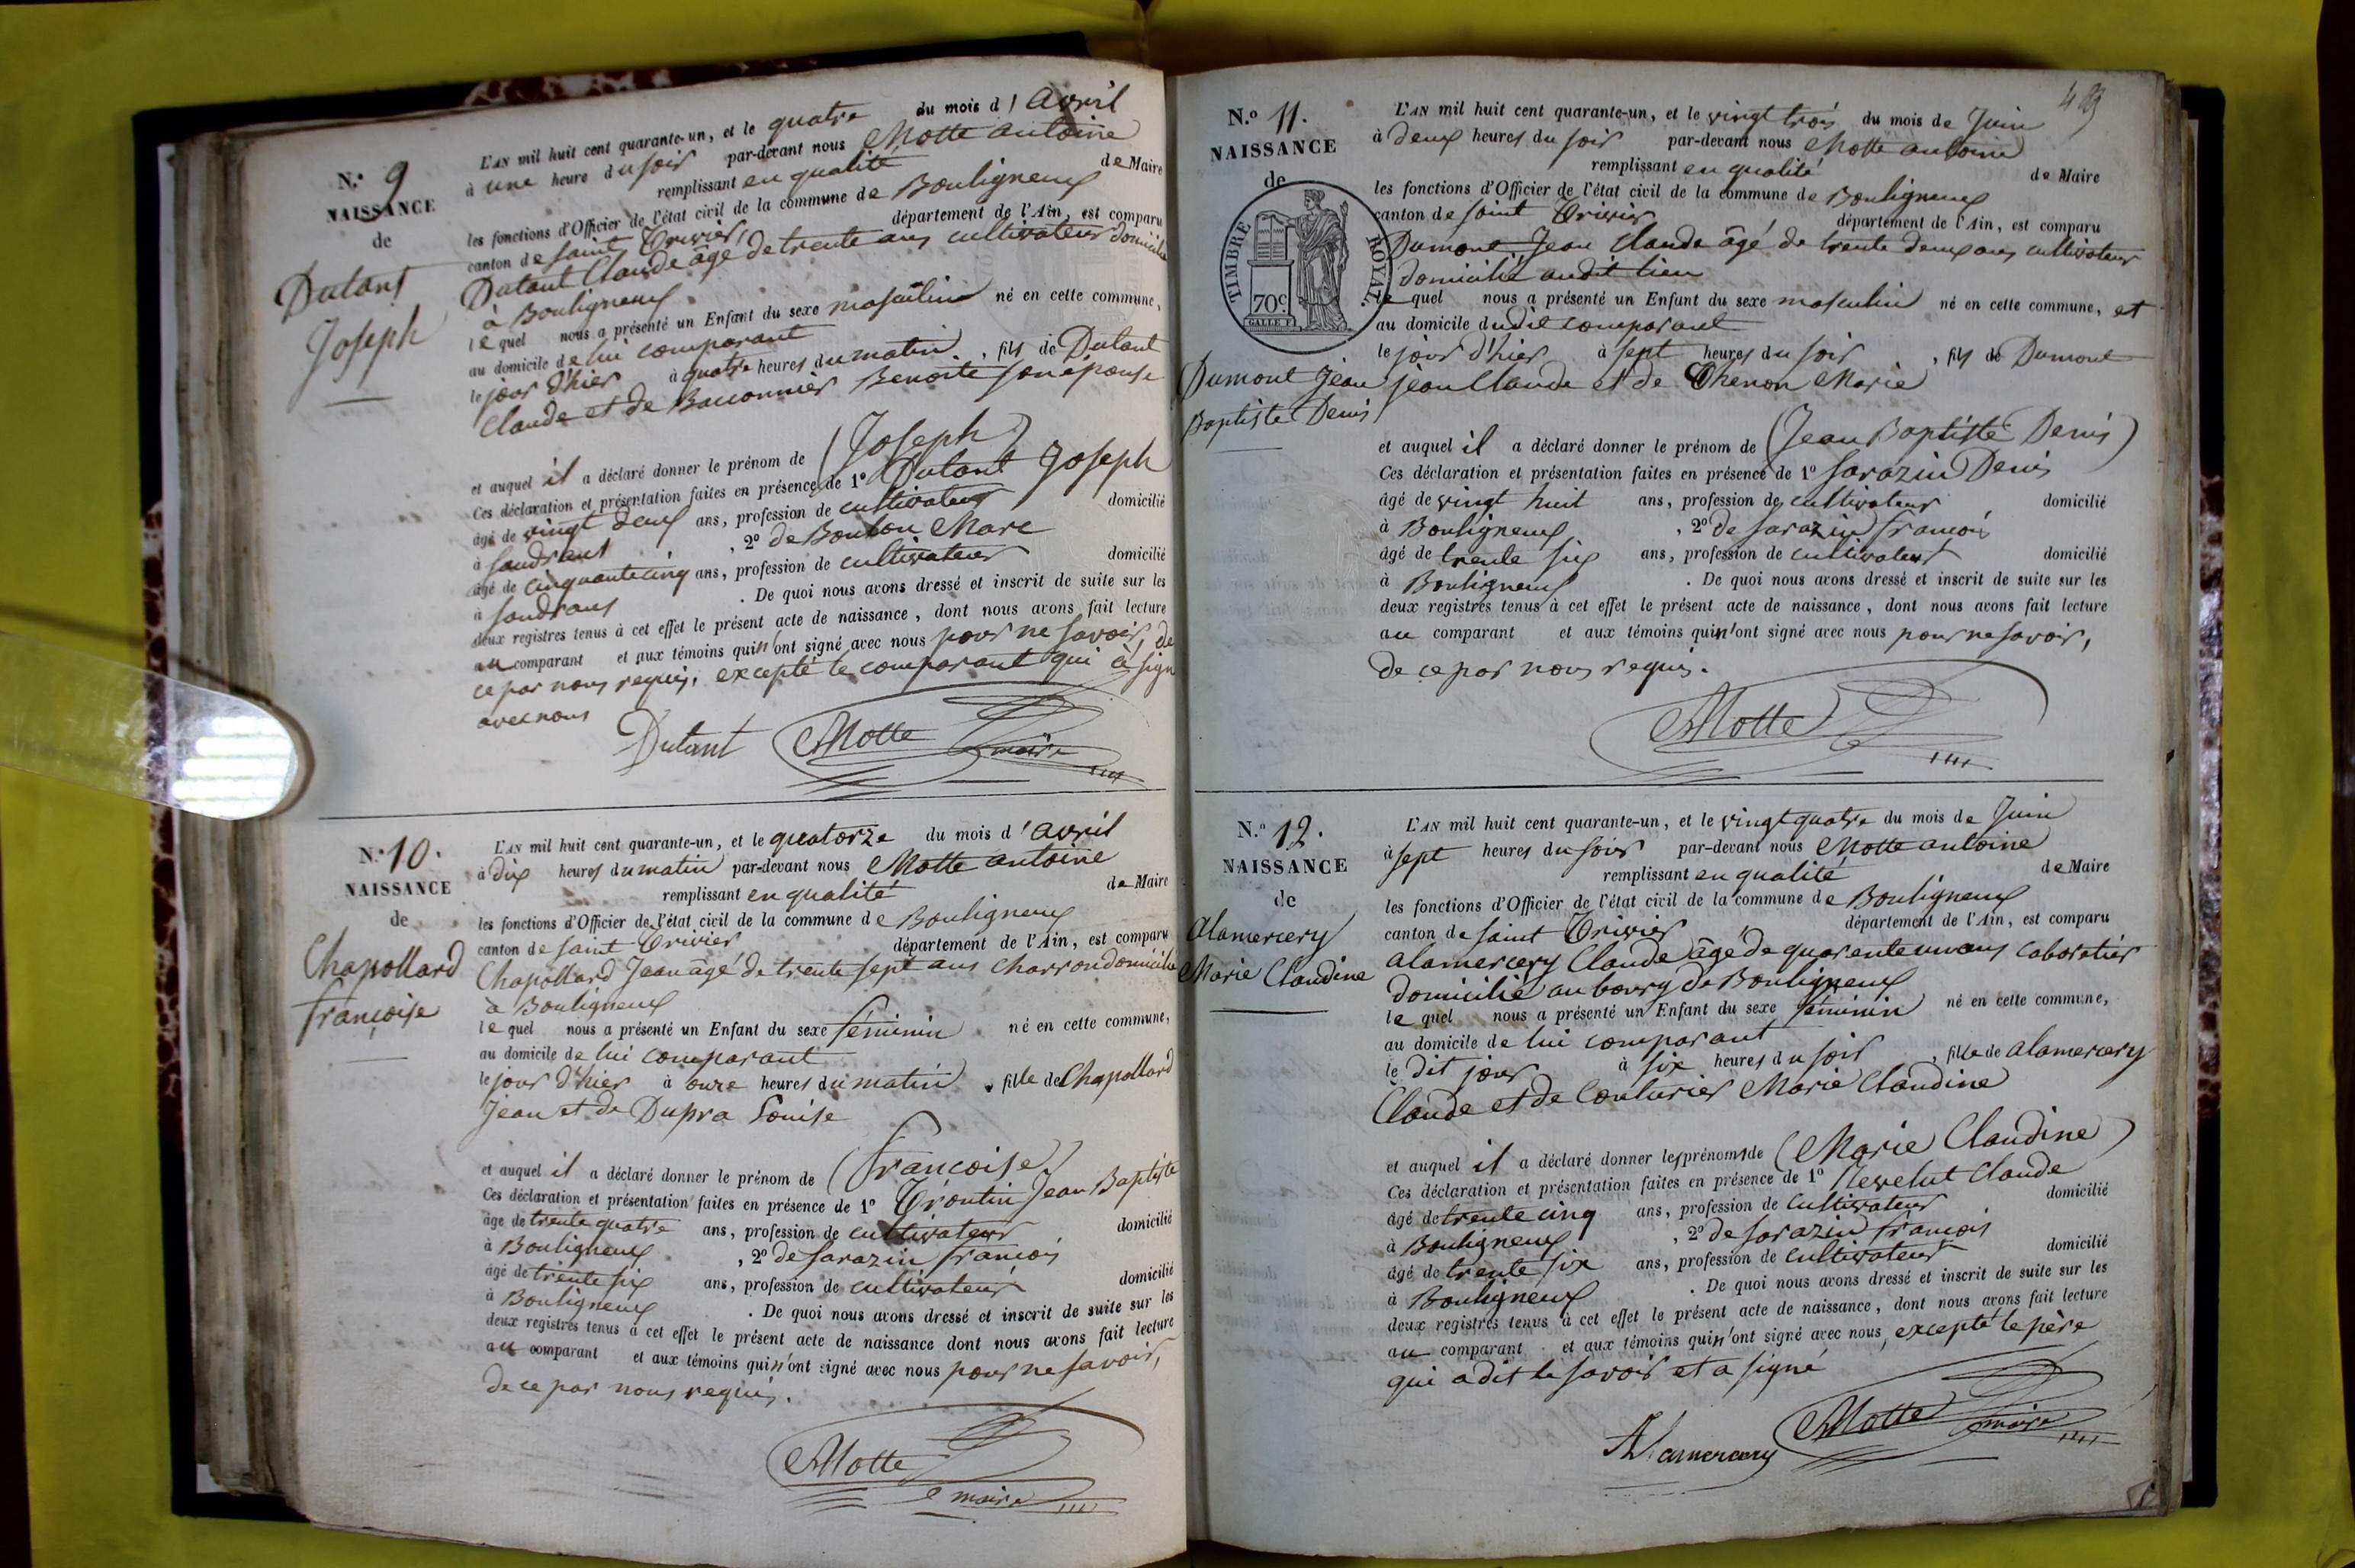 N.° 9
NAISSANCE
de
Dutant
Joseph
L'AN mil huit cent quarante-un, et le quatre du mois d'avril
à une heure du soir par-devant nous Motte antoine
remplissant en qualité de Maire
les fonctions d'Officier de l'état civil de la commune de Bouligneux
canton de saint Trivier, département de l'Ain, est comparu
Dutant Claude âgé de trente ans cultivateur domicilié
à Bouligneux
lequel nous a présenté un Enfant du sexe masculin né en cette commune,
au domicile de lui comparant
le jour d'hier à quatre heures du matin, fils de Dutant
Claude et de Baconnier Benoite son épouse
et auquel il a déclaré donner le prénom de (Joseph)
Ces déclaration et présentation faites en présence de 1° Dutant Joseph
âgé de vingt deux ans, profession de cultivateur domicilié
à Sandrans, 2° de Bouton Marc
âgé de cinquante cinq ans, profession de cultivateur domicilié
à Sandrans. De quoi nous avons dressé et inscrit de suite sur les
deux registres tenus à cet effet le présent acte de naissance, dont nous avons fait lecture
au comparant et aux témoins qui n'ont signé avec nous pour ne savoir, de
ce par nous requis, excepté le comparant qui a signé
avec nous
Dutant Motte maire
N.° 10.
NAISSANCE
de
Chapollard
françoise
L'AN mil huit cent quarante-un, et le quatorze du mois d'avril
à dix heures du matin par-devant nous Motte antoine
remplissant en qualité de Maire
les fonctions d'Officier de l'état civil de la commune de Bouligneux
canton de saint Trivier département de l'Ain, est comparu
Chapollard Jean âgé de trente sept ans charron domicilié
à Bouligneux
lequel nous a présenté un Enfant du sexe féminin né en cette commune,
au domicile de lui comparant
le jour d'hier à onze heures du matin, fille de Chapollard
Jean et de Dupra Louise
et auquel il a déclaré donner le prénom de (françoise)
Ces déclaration et présentation faites en présence de 1° Trontin Jean Baptiste
âgé de trente quatre ans, profession de cultivateur domicilié
à Bouligneux, 2° de sarazin françois
âgé de trente six ans, profession de cultivateur domicilié
à Bouligneux. De quoi nous avons dressé et inscrit de suite sur les
deux registres tenus à cet effet le présent acte de naissance dont nous avons fait lecture
au comparant et aux témoins qui n'ont signé avec nous pour ne savoir,
de ce par nous requis.
Motte
maire
N.° 11.
NAISSANCE
de
TIMBRE ROYAL.
70c.
Dumont Jean
Baptiste Denis
L'AN mil huit cent quarante-un, et le vingt trois du mois de Juin
à deux heures du soir par-devant nous Motte antoine
remplissant en qualité de Maire
les fonctions d'Officier de l'état civil de la commune de Bouligneux
canton de saint Trivier département de l'Ain, est comparu
Dumont Jean Claude âgé de trente deux ans cultivateur
domicilié audit lieu
lequel nous a présenté un Enfant du sexe masculin né en cette commune, et
au domicile dudit comparant
le jour d'hier à sept heures du soir, fils de Dumont
jean Claude et de Thenon Marie
et auquel il a déclaré donner le prénom de (Jean Baptiste Denis)
Ces déclaration et présentation faites en présence de 1° sarazin Denis
âgé de vingt huit ans, profession de cultivateur domicilié
à Bouligneux, 2° de sarazin françois
âgé de trente six ans, profession de cultivateur domicilié
à Bouligneux. De quoi nous avons dressé et inscrit de suite sur les
deux registres tenus à cet effet le présent acte de naissance, dont nous avons fait lecture
au comparant et aux témoins qui n'ont signé avec nous pour ne savoir,
de ce par nous requis.
Motte
N.° 12.
NAISSANCE
de
alamercery
Marie Claudine
L'AN mil huit cent quarante-un, et le vingt quatre du mois de Juin
à sept heures du soir par-devant nous Motte antoine
remplissant en qualité de Maire
les fonctions d'Officier de l'état civil de la commune de Bouligneux
canton de saint Trivier département de l'Ain, est comparu
alamercery Claude âgé de quarente un ans cabaretier
domicilié au bourg de Bouligneux
lequel nous a présenté un Enfant du sexe féminin né en cette commune,
au domicile de lui comparant
le dit jour à six heures du soir, fille de alamercery
Claude et de Couturier Marie Claudine
et auquel il a déclaré donner les prénoms de (Marie Claudine)
Ces déclaration et présentation faites en présence de 1° Nevelut Claude
âgé de trente cinq ans, profession de cultivateur domicilié
à Bouligneux, 2° de sarazin françois
âgé de trente six ans, profession de cultivateur domicilié
à Bouligneux. De quoi nous avons dressé et inscrit de suite sur les
deux registres tenus à cet effet le présent acte de naissance, dont nous avons fait lecture
au comparant et aux témoins qui n'ont signé avec nous, excepté le père
qui a dit le savoir et a signé
Alamercery Motte maire